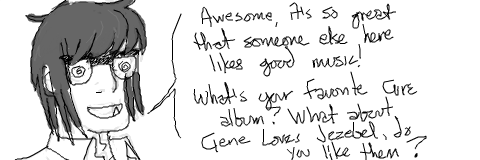 Awesome, it's so great
that someone else here
likes good music!
What's your favorite Cure
album? What about
Gene Loves Jezebel, do
you like them?